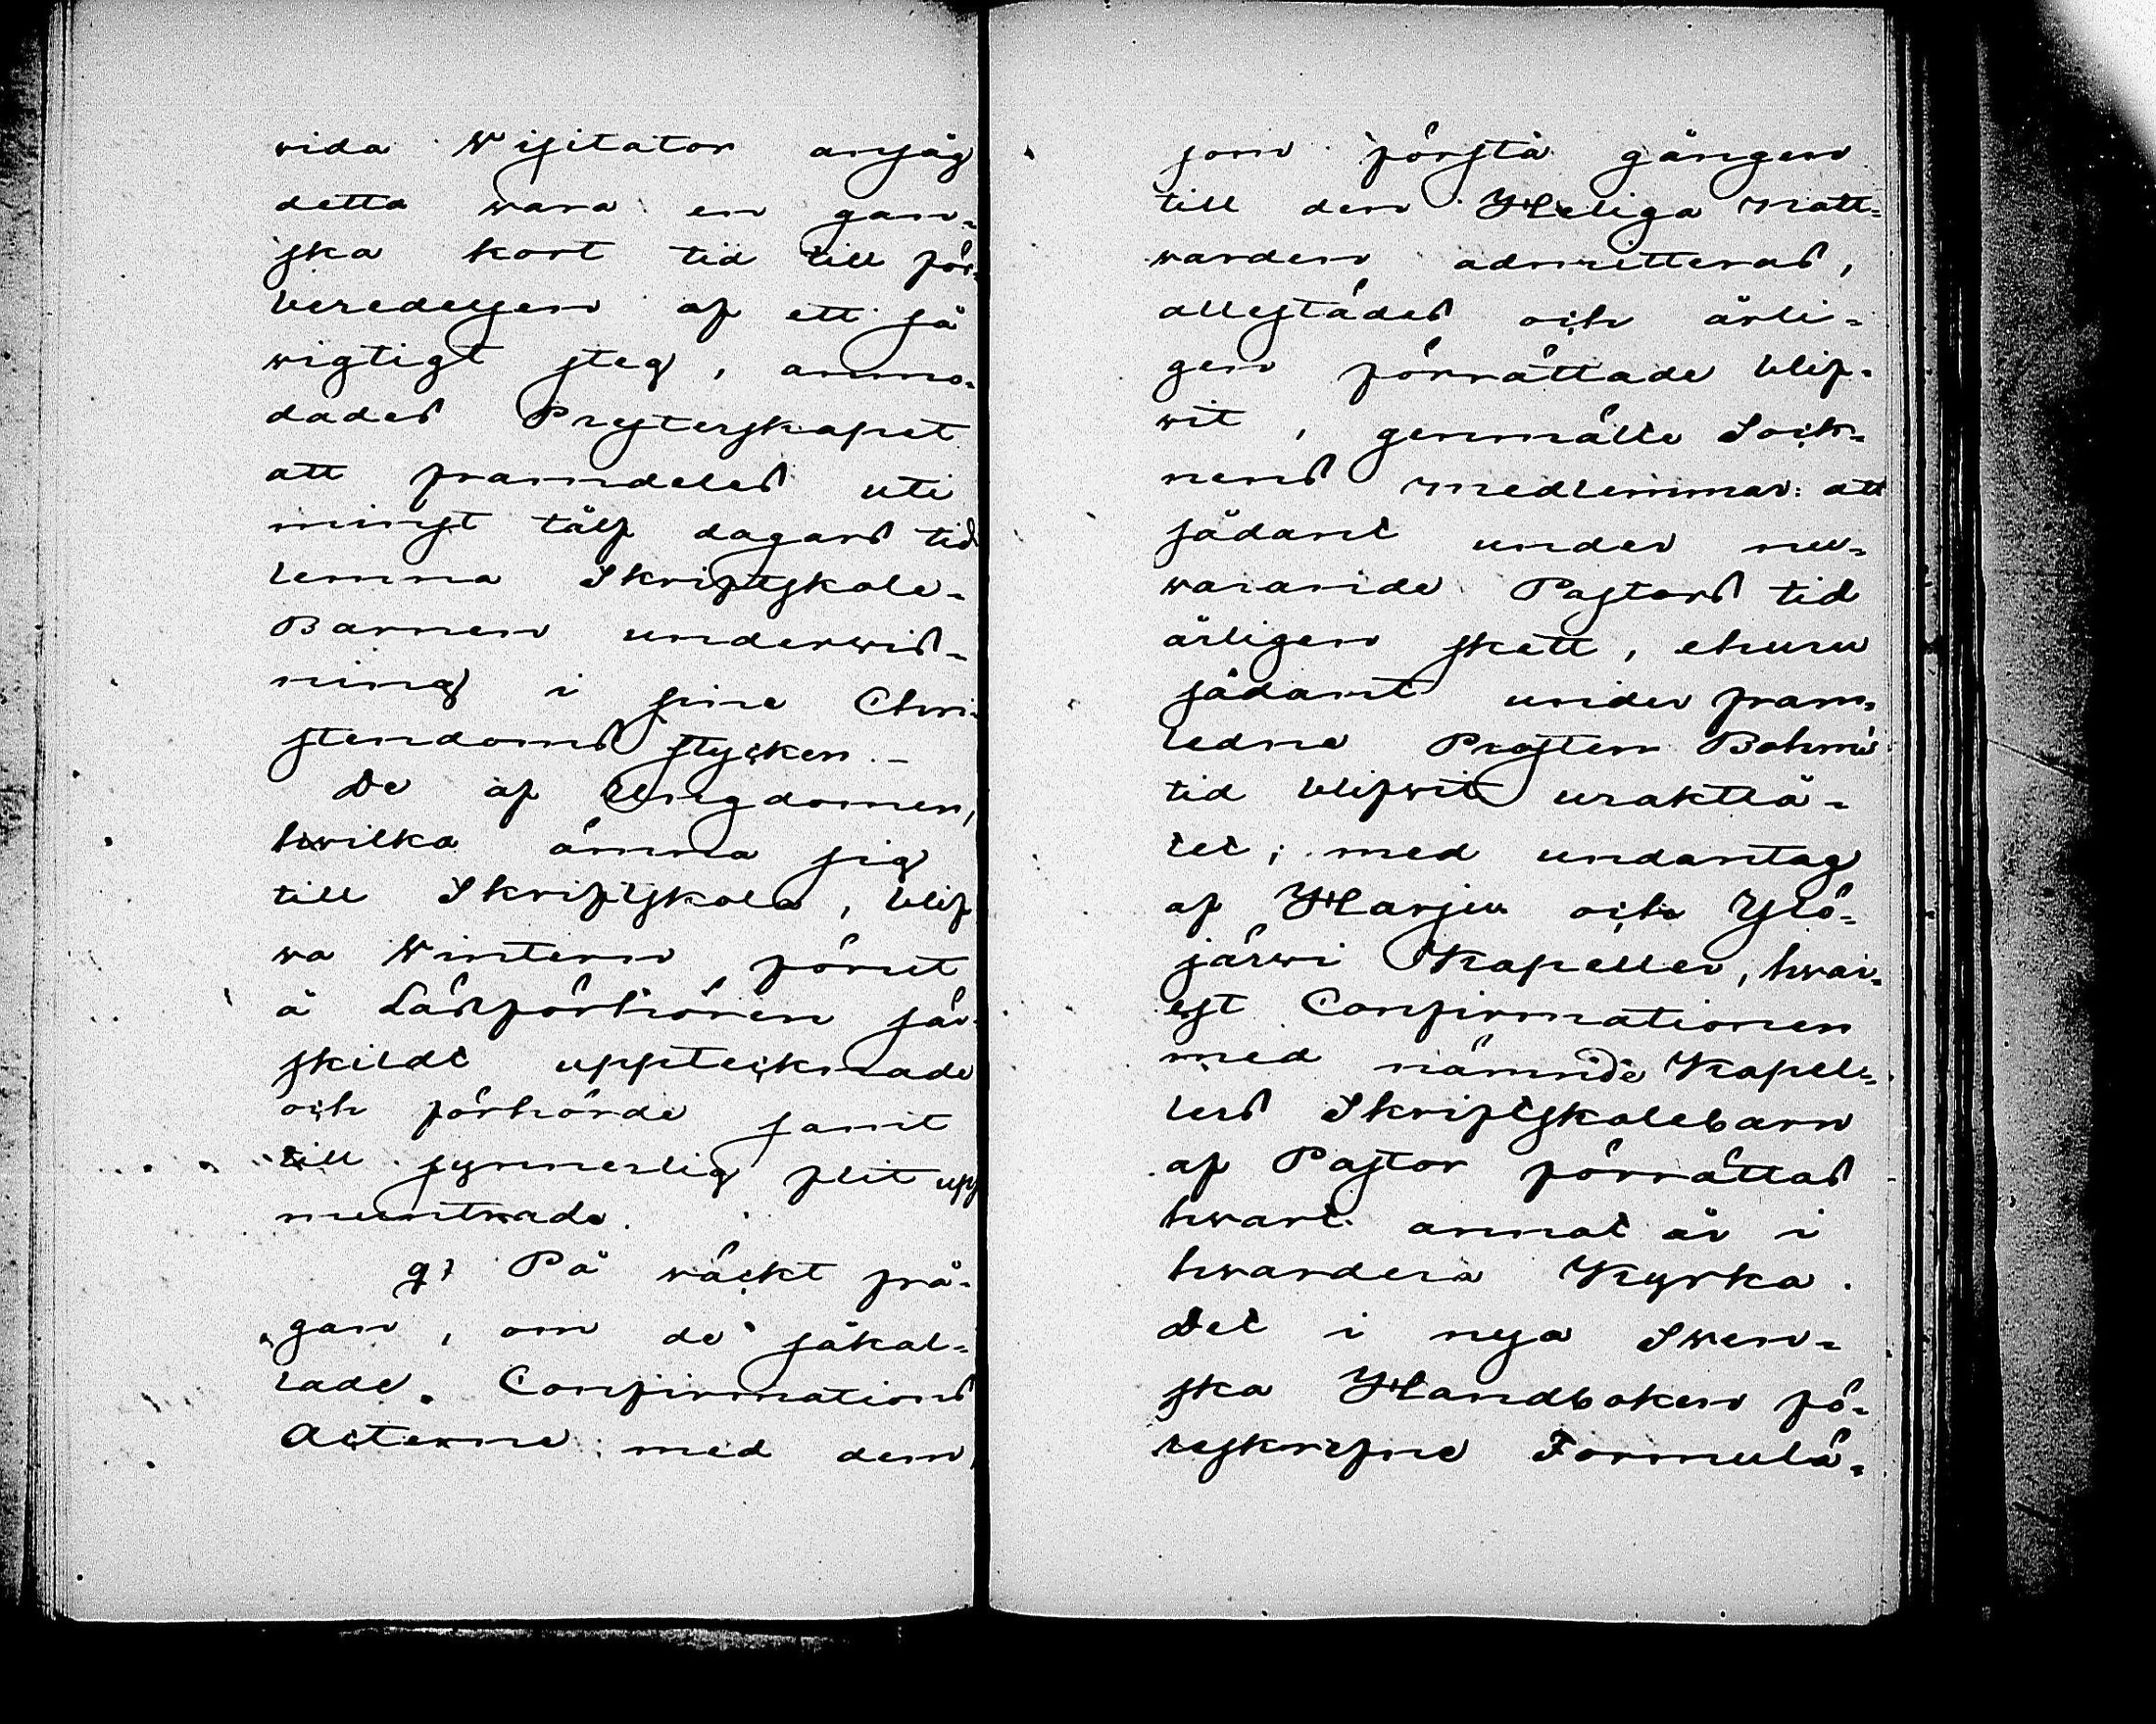 vida Wisitator ansåg
detta wara en gan-
ska kort tid till för-
beredelsen af ett så
wigtigt steg, anmo-
dades Presterskapet
att framdeles uti
minst tålf dagars tid
lemna Skriftskole-
Barnen underwis-
ning i sine Chri-
stendoms stycken. -
De af Ungdomen,
hwilka ämna sig
till Skriftskola, blif
wa Wintern förut
å Läsförhören sär-
skildt uppteknade
och förhörde samt
till synnerlig flit upp
muntrade.
9: På wäckt frå-
gan, om de såkal-
lade Confirmations
Acterne med dem,
som första gången
till den Heliga Natt-
warden admitteras,
allestädes och årli-
gen förrättade blif-
wit, genmälte Sock-
nens medlemmar: att
sådant under nu-
warande Pastors tid
årligen skett, ehuru
sådant under fram-
ledne Prosten Bohms
tid blifwit uraktlå-
tet; med undantag
af Harju och Ylö-
järwi Kapeller, hwar-
est Confirmationen
med nämnde Kapel-
lers Skriftskolebarn
af Pastor förrättas
hwart annat år i
hwardera Kyrka.
Det i nya Swen-
ska Handboken fö-
reskrefne Formulä-